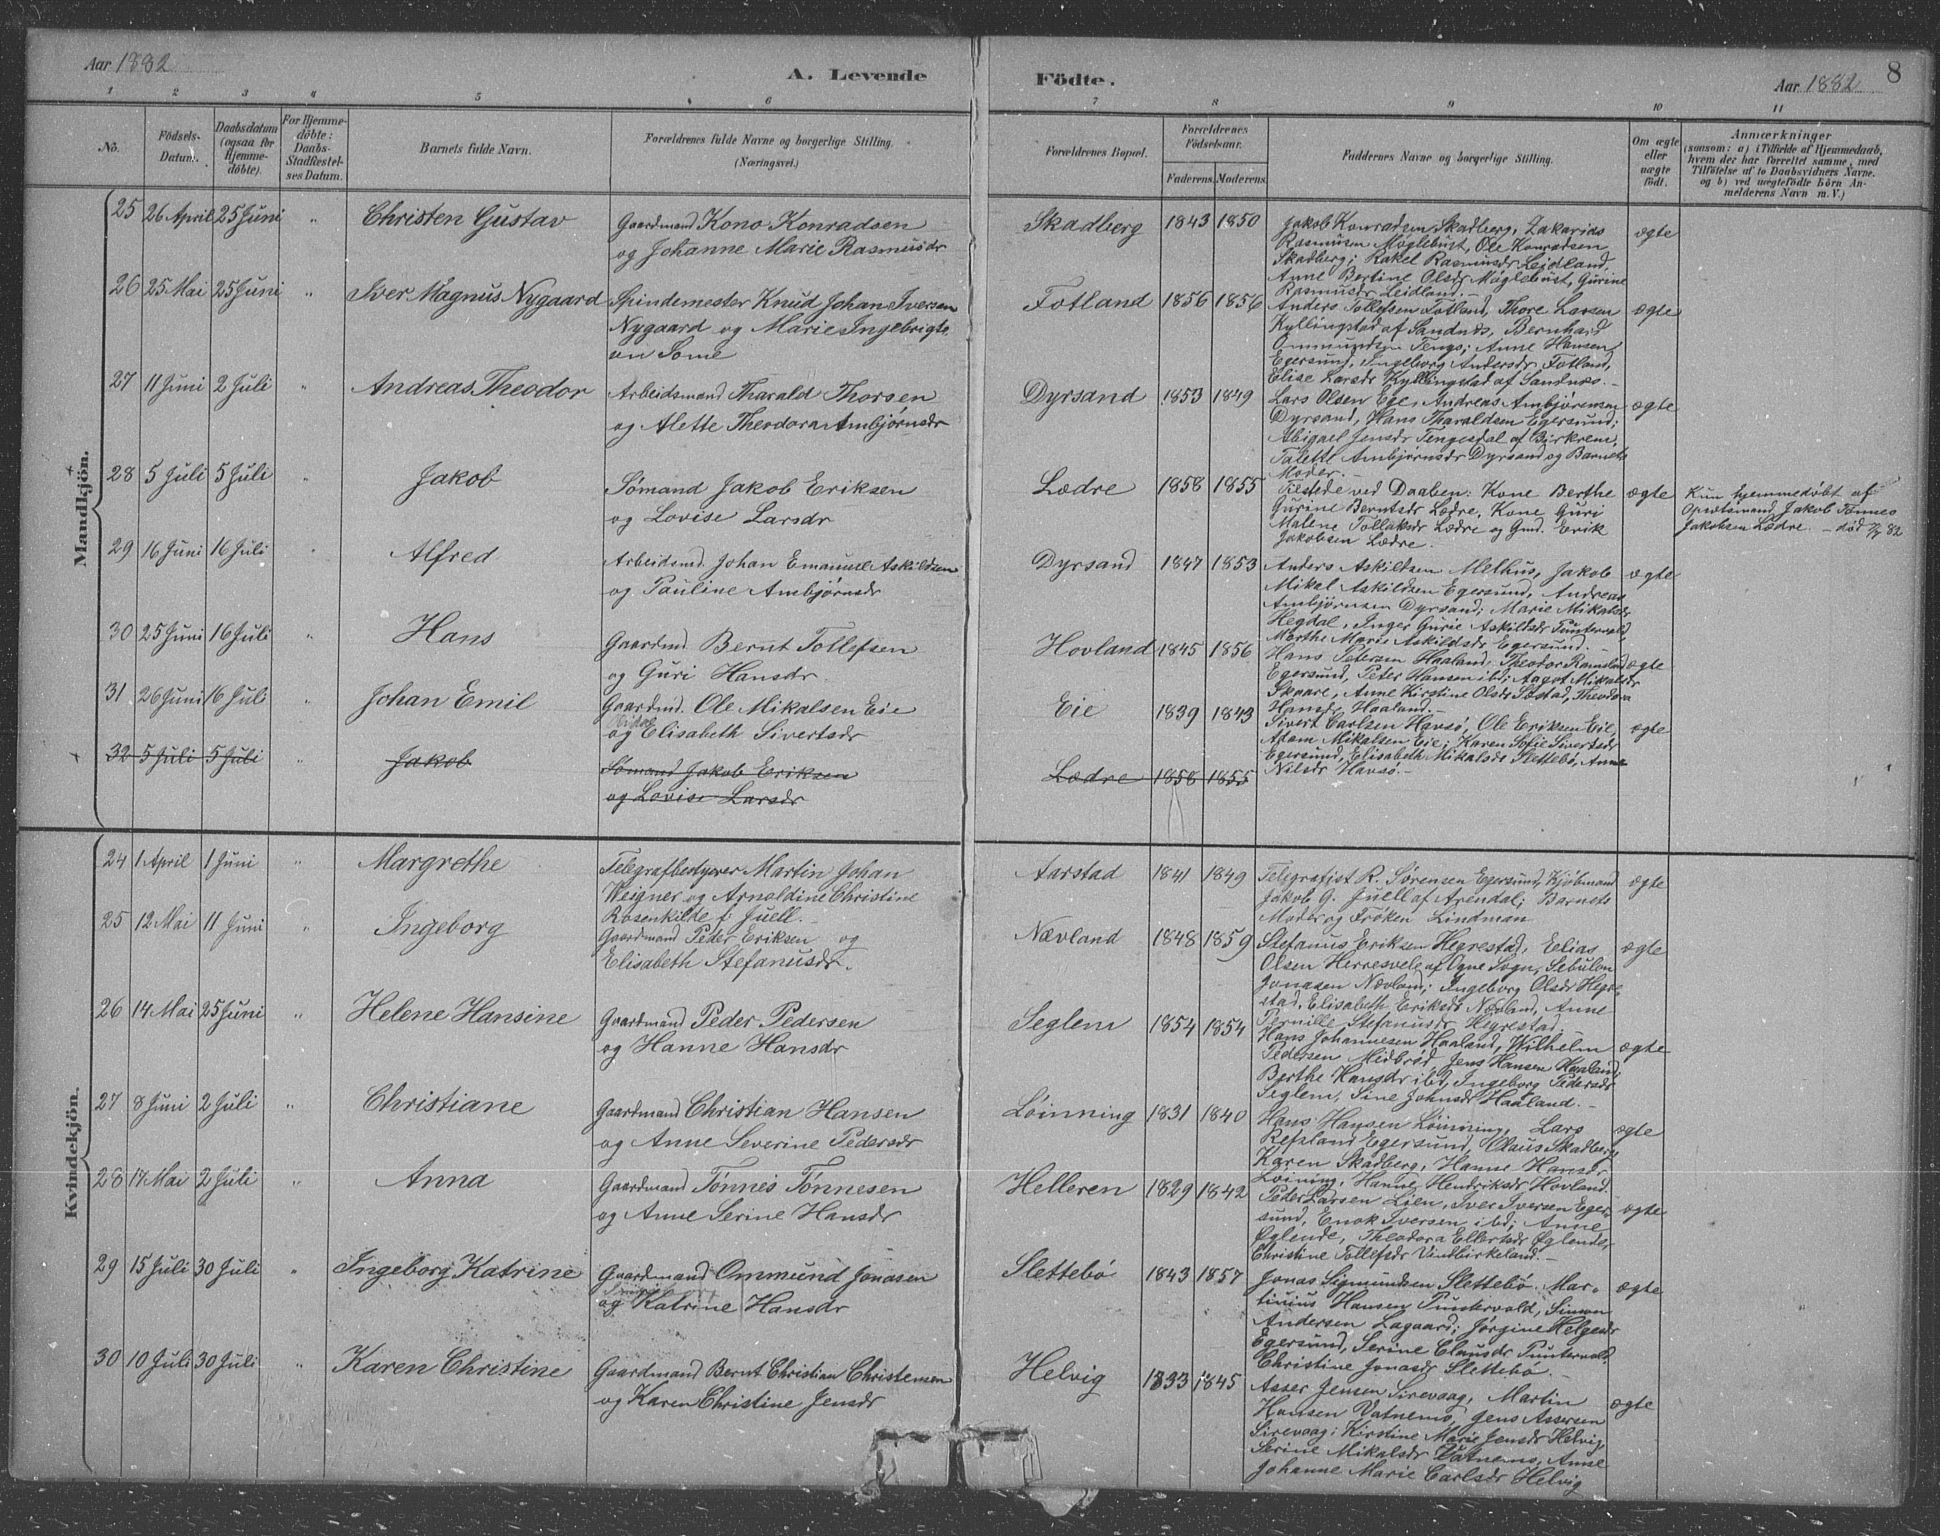 Aar 1882
A. Levende
Födte.
Aar 1882
8
1 2 3 4 5 6 7 8 9 10 11
No.
Födsels-
Datum.
Daabsdatum
(ogsaa for
Hjemme-
döbte).
For Hjemme-
döbte:
Daabs-
Stadfæstel-
ses Datum.
Barnets fulde Navn.
Forældrenes fulde Navne og borgerlige Stilling.
(Næringsvei.)
Forældrenes Bopæl.
Forældrenes
Födselsaar.
Faderens. Moderens.
Faddernes Navne og borgerlige Stilling.
Om ægte
eller
uægte
födt.
Anmærkninger
(saasom: a) i Tilfælde af Hjemmedaab,
hvem der har forrettet samme, med
Tilföielse af to Daabsvidners Navne.
og b) ved uægtefödte börn An-
melderens Navn m. V.)
Mandkjön.
25 26 April 25 Juni " Christen Gustav
Gaardmand Kono Konradsen
og Johanne Marie Rasmusdr
Skadberg 1843 1850
Jakob Konradsen Skadberg, Zakarias
Rasmusen Møglebust, Ole Konradsen
Skadberg; Rakel Rasmusdr Leidland,
Anne Bertine Olsdr Møglebust, Gurine
Rasmusdr Leidland.
ægte
26 25 Mai 25 Juni " Iver Magnus Nygaard
Spindemester Knud Johan Iversen
Nygaard og Marie Ingebrigts-
en Some
Fotland 1856 1856
Anders Tollefsen Fotland, Thore Larsen
Kyllingstad af Sandnæs, Bernhard
Ommundsen Tengs; Anne Hansen
Egersund, Ingeborg Andersdr Fotland,
Elise Larsdr Kyllingstad af Sandnæs.
ægte
27 11 Juni 2 Juli " Andreas Theodor
Arbeidsmand Tharald Thorsen
og Alette Theodora Ambjørnsdr
Dyrsand 1853 1849
Lars Olsen Ege, Andreas Ambjørensen
Dyrsand, Hans Tharaldsen Egersund;
Abigael Jensdr Tengesdal af Birkrem,
Talette Ambjørnsdr Dyrsand og Barnets
Moder.
ægte
28 5 Juli 5 Juli " Jakob
Sømand Jakob Eriksen
og Lovise Larsdr
Lædre 1858 1855
Tilstede ved Daaben: Kone Berthe
Gurine Berntsdr Lædre, Kone Guri
Malene Tollaksdr Lædre og Gmd. Erik
Jakobsen Lædre.
ægte
Kun hjemmedøbt af
Opsitsmand Jakob Tønnes
Jakobsen Lædre. – død 7/7 82
29 16 Juni 16 Juli " Alfred
Arbeidsmd. Johan Emanuel Askildsen
og Pauline Ambjørnsdr
Dyrsand 1847 1853
Anders Askildsen Melhus, Jakob
Mikal Askildsen Egersund, Andreas
Ambjørnsen Dyrsand; Marie Mikalsdr
Hegdal, Inger Gurie Askildsdr Puntervold,
Marthe Marie Askildsdr Egersund.
ægte
30 25 Juni 16 Juli " Hans
Gaardmd. Bernt Tollefsen
og Guri Hansdr.
Hovland 1845 1856
Hans Petersen Haaland, Theodor Ramsland
Egersund, Peter Hansen ibd; Aagot Mikalsdr
Skaare, Anne Kirstine Olsdr Søstad, Theodora
Hansdr Haaland.
ægte
31 26 Juni 16 Juli " Johan Emil
Gaardmd. Ole Mikalsen Eie
og Elisabeth Sivertsdr
Eie 1839 1843
Sivert Carlsen Havsø, Ole Eriksen Eie,
Adam Mikalsen Eie; Karen Sofie Sivertsdr
Egersund, Elisabeth Mikalsdr Slettebø, Anne
Nilsdr Havsø.
ægte
32 5 Juli 5 Juli " Jakob
Sømand Jakob Eriksen
og Lovise Larsdr
Lædre 1858 1855
Kvindekjön.
24 1 April 1 Juni " Margrethe
Telegrafbestyrer Martin Johan
Weigner og Arnoldine Christine
Rosenkilde f. Juell.
Aarstad 1841 1849
Telegrafist R. Sørensen Egersund, Kjøbmand
Jakob G. Juell af Arendal; Barnets
Moder og Frøken Lindman
ægte
25 12 Mai 11 Juni " Ingeborg
Gaardmand Peder Eriksen og
Elisabeth Stefanusdr.
Nævland 1848 1859
Stefanus Eriksen Hegrestad, Elias
Olsen Herresvele af Ogne Sogn, Sebulon
Jonasen Nævland; Ingeborg Olsdr Hegre-
stad, Elisabeth Eriksdr Nævland, Anne
Pernille Stefanusdr Hegrestad.
ægte
26 14 Mai 25 Juni " Helene Hansine
Gaardmand Peder Pedersen
og Hanne Hansdr
Seglem 1854 1854
Hans Johannesen Haaland, Wilhelm
Pedersen Midbrød, Jens Hansen Haaland;
Berthe Hansdr ibd, Ingeborg Pedersdr
Seglem, Sine Johnsdr Haaland.
ægte
27 8 Juni 2 Juli " Christiane
Gaardmand Christian Hansen
og Anne Severine Pedersdr
Løinning 1831 1840
Hans Hansen Løinning, Lars
Refsland Egersund, Olaus Skadberg;
Karen Skadberg, Hanne Hansdr
Løining, Hanne Hendriksdr Hovland.
ægte
28 17 Mai 2 Juli " Anna
Gaardmand Tønnes Tønnesen
og Anne Serine Hansdr
Helleren 1829 1842
Peder Larsen Lien, Iver Iversen Eger-
sund, Enok Iversen ibd; Anne
Øglende, Theodora Ellertsdr Øglende,
Christine Tollefsdr Vindbirkeland.
ægte
29 15 Juli 30 Juli " Ingeborg Katrine
Gaardmand Ommund Jonasen
og Katrine Hansdr
Slettebø 1843 1857
Jonas Sigmundsen Slettebø, Mar-
tinius Hansen Puntervold, Simon
Andersen Lagaard; Jørgine Helgesdr
Egersund, Serine Clausdr Puntervold,
Christine Jonasdr Slettebø.
ægte
30 10 Juli 30 Juli " Karen Christine
Gaardmand Bernt Christian Christensen
og Karen Christine Jensdr
Helvig 1833 1845
Asser Jensen Sirevaag, Martin
Hansen Vatnemo, Jens Assersen
Sirevaag; Kirstine Marie Jensdr Helvig,
Serine Mikalsdr Vatnemo, Anne
Johanne Marie Carlsdr Helvig
ægte